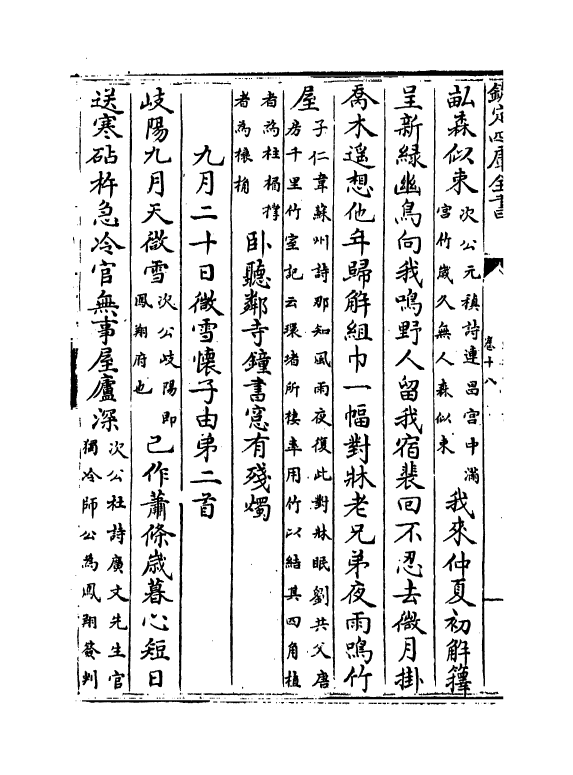 欽定四庫全書
卷十八
畝森似束
次公元稹詩連昌宫中滿
宮竹歲久無人森似束
我來仲夏初解籜
呈新綠幽鳥向我鳴野人留我宿裴回不忍去微月掛
喬木遥想他年歸解組巾一幅對牀老兄弟夜雨鳴竹
屋
子仁韋蘇州詩那知風雨夜復此對牀眠劉共父唐
房千里竹室記云環堵所棲率用竹以結其四角植
者為柱楣撑
者為榱桷
卧聽鄰寺鐘書窻有殘燭
九月二十日微雪懷子由弟二首
岐陽九月天微雪
次公岐陽即
鳳翔府也
已作蕭條歲暮心短日
送寒砧杵急冷官無事屋廬深
次公杜詩廣文先生官
獨冷師公為鳳翔簽判